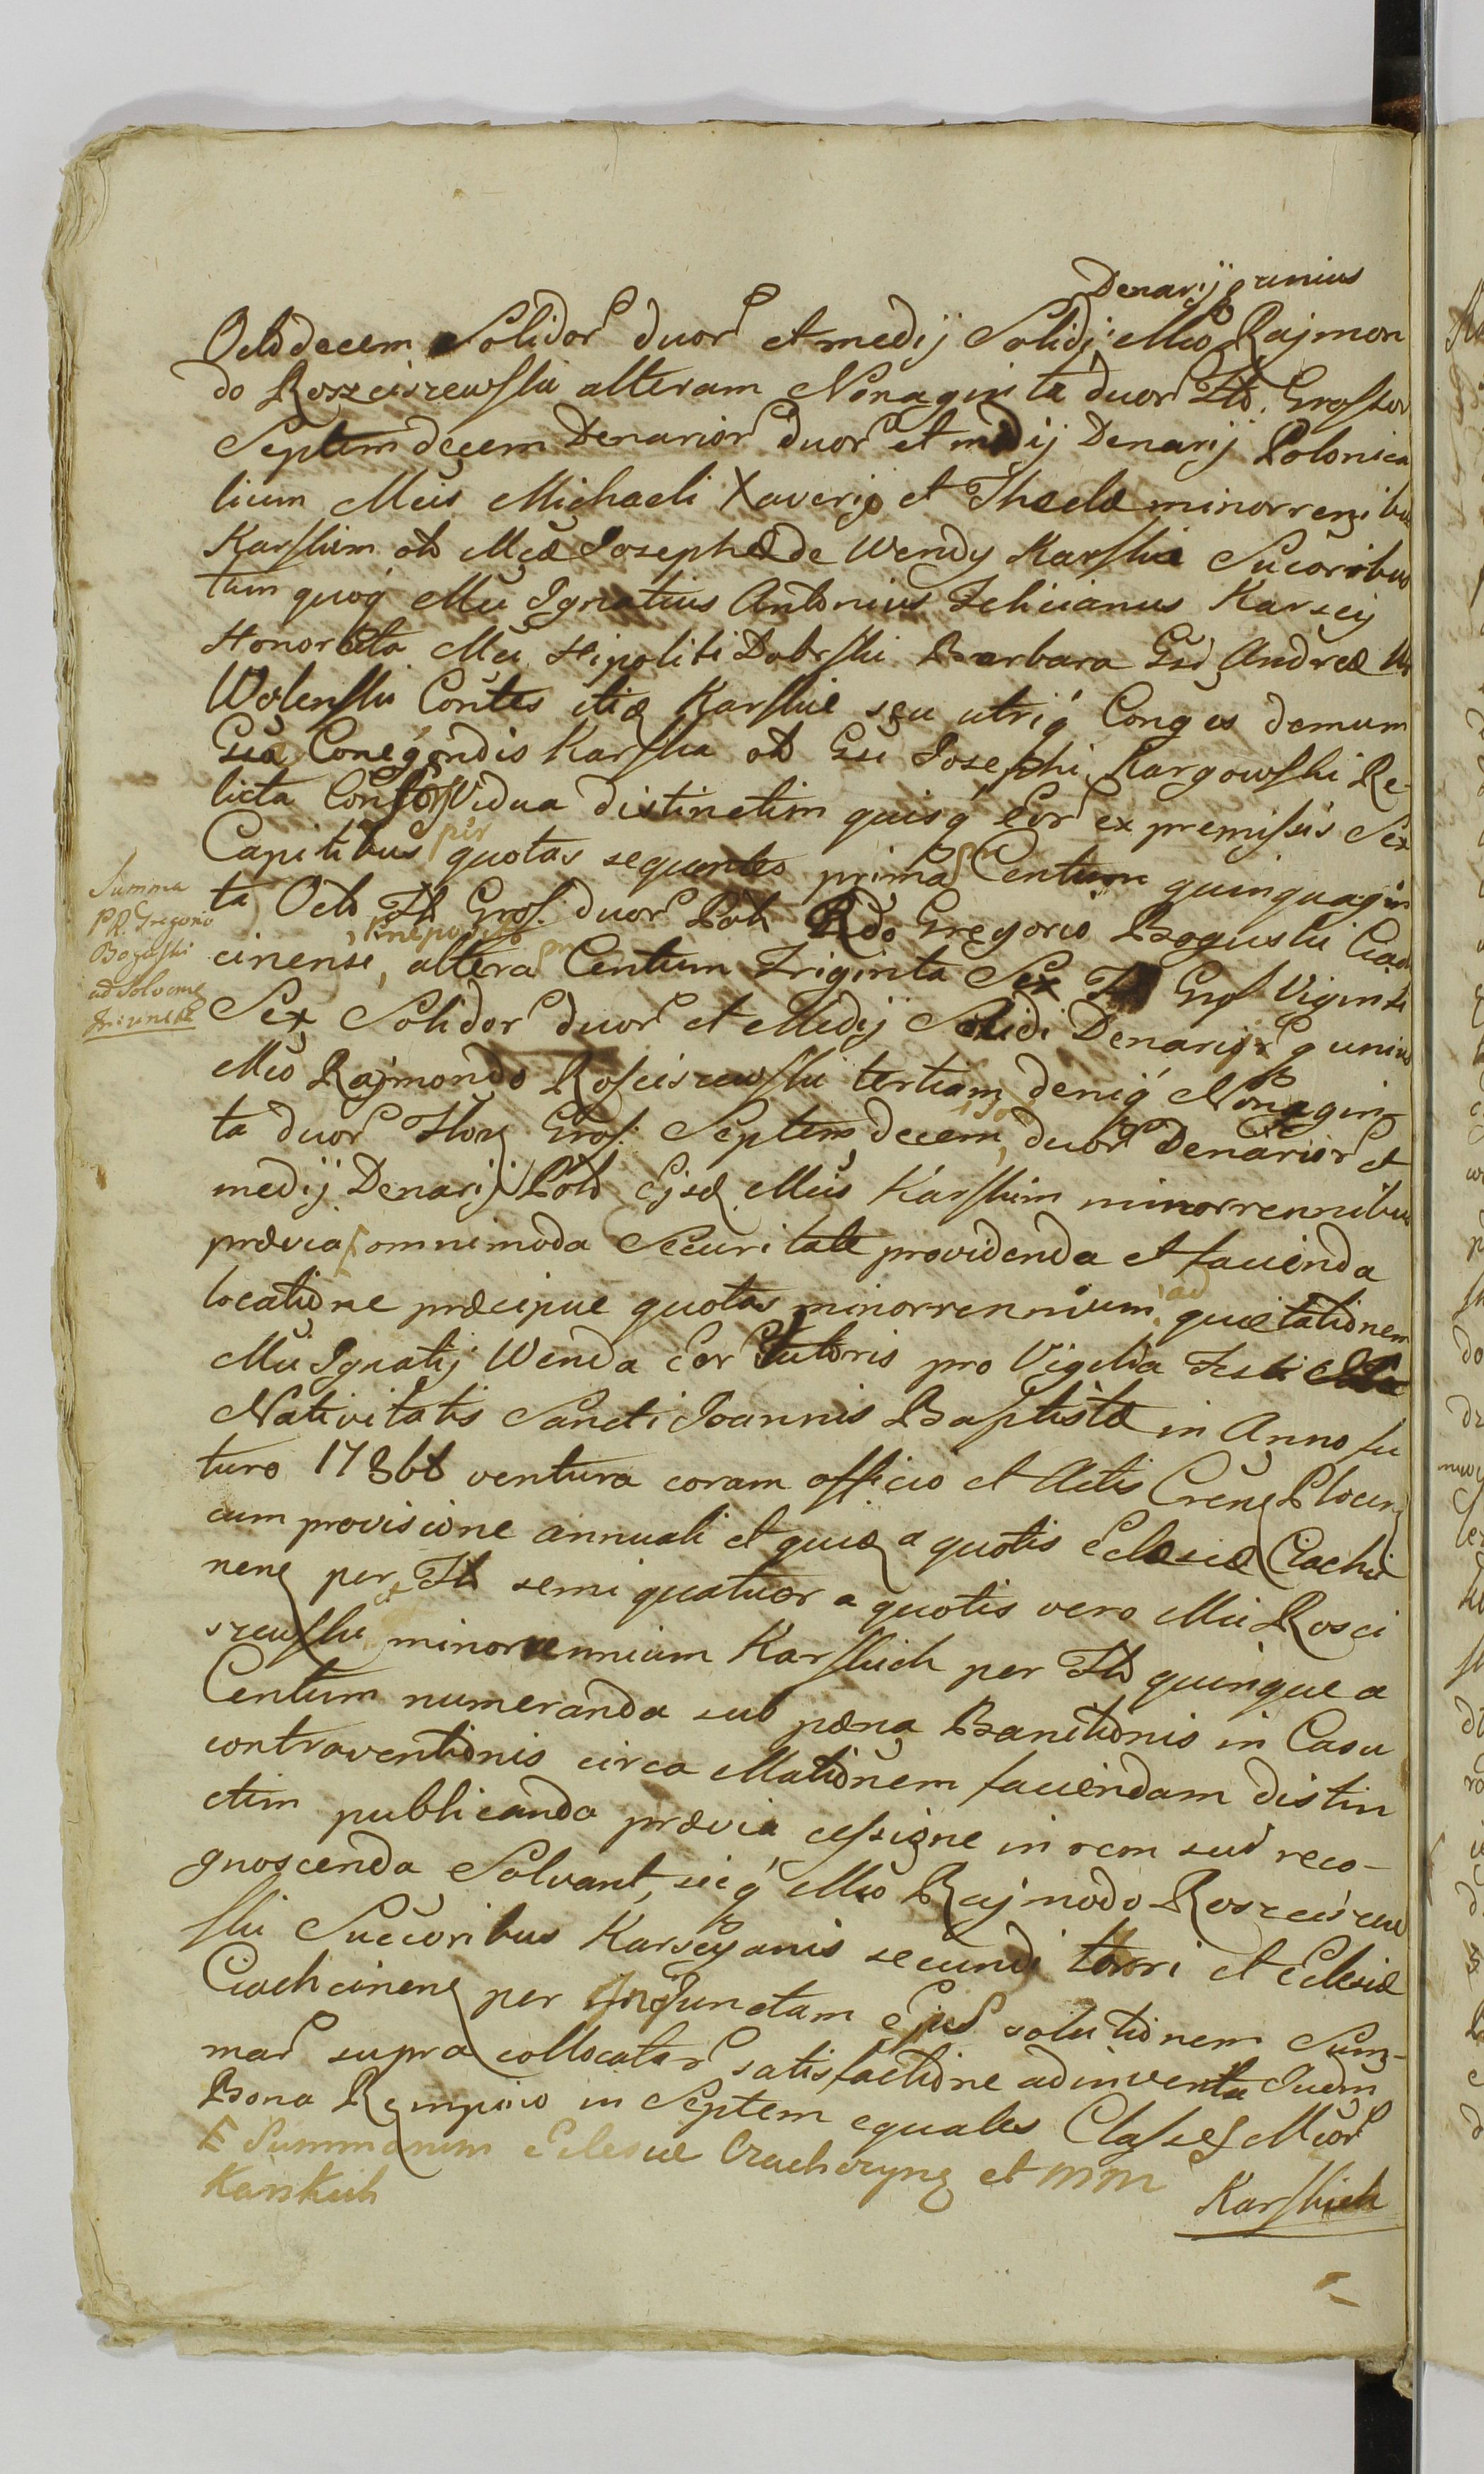 Denarij q unius
Octodecem Solidor duor et medij Solidi Mco Rajmon
do Roszciszewski alteram Nonaginta duor Fld. Grossor
Septemdecem Denarior duor et medij Denarij Polonica
lium Mcis Michaeli Xaverijo et Theclæ minorrenibus
Karskim ab Mcæ Josephæ de Wendy Karskie Sucoribus
tum quoq Mci Ignatius Antonius Felicianus Karscij
Honorata Mci Hipoliti Dobrski Barbara Gsi Andreæ
Wolenski Contes itiq Karskie seu utriq Cong es demum
Gsa Conegondis Karska ab Gsi Josephi Kargowski Re-
licta Consors Vidua distinctim quisq Eor ex premissis Sex
Capitibus per quotas sequentes primã Centum quinquagin
ta Octo Fld Gros. duor Pol. Rdo Gregorio Boguski Ciach
cinensi, Præposito altera Centum Triginta Sex Fl Gros Viginti
Summa
P. R. Gregorio
Boguski
ad Solvend
Sex Solidor duor et Medij Solidi Denarij q unius
Mco Rajmondo Rosciszewski tertiam deniq Nonagin
ta duor Flor Gros. Septem decem, duor Denarior et
medij Denarij Pold Ejsd Mcis Karskim minorrennibus
prævia omnimoda Securitate providenda et facienda
locatione præcipue quotas minorrennium, ad quietationem
Mci Ignatij Wenda Eor Tutoris pro Vigilia Festi
Nativitatis Sancti Joannis Baptistæ in Anno fu
turo 1786 ventura coram officio et Actis Crens Plocen
cum provisione annuali et quidq a quotis Eclesiæ Ciachci
nens per Fld semi quatuor a quotis vero Mci Rosci
szewski et minorrenniam Karskich per Fld quinque a
Centum numeranda sub pæna Banitionis in Casu
contraventionis circa Mationem faciendam distin
ctim publicanda prævia cessione in rem sui reco-
gnoscenda Solvant, sicq Mco Rajmodo Roszciszew
ski Succoribus Karscyanis secundi torri et Eclesiæ
Ciachcinens per Injunctam Ejus solutionem Sum-
mar supra collocatar satisfactione adinventa Eadm
Bona Rempino in Septem equales Classes Mcor
E Summarum Eclesiæ Ciachcyns et MM
Karskich
Karskich